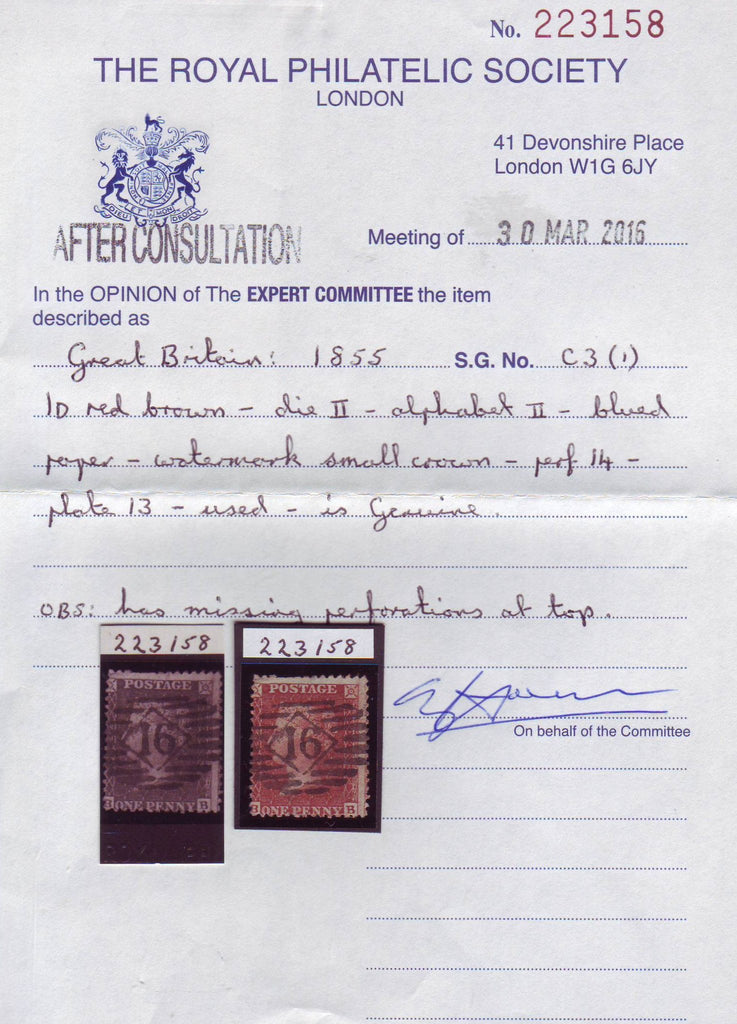 No. 223158
THE ROYAL PHILATELIC SOCIETY
LONDON
41 Devonshire Place
London W1G 6JY
AFTER CONSULTATION
Meeting of 30 MAR 2016
In the OPINION of The EXPERT COMMITTEE the item
described as
Great Britain: 1855 S.G. No. C3(1)
1D red brown - die II - alphabet II - blued
paper - watermark small crown - perf 14 -
plate 13 - used - is Genuine.
OBS: has missing perforations at top.
223158
POSTAGE
16
ONE PENNY B
223158
POSTAGE
16
ONE PENNY B
On behalf of the Committee